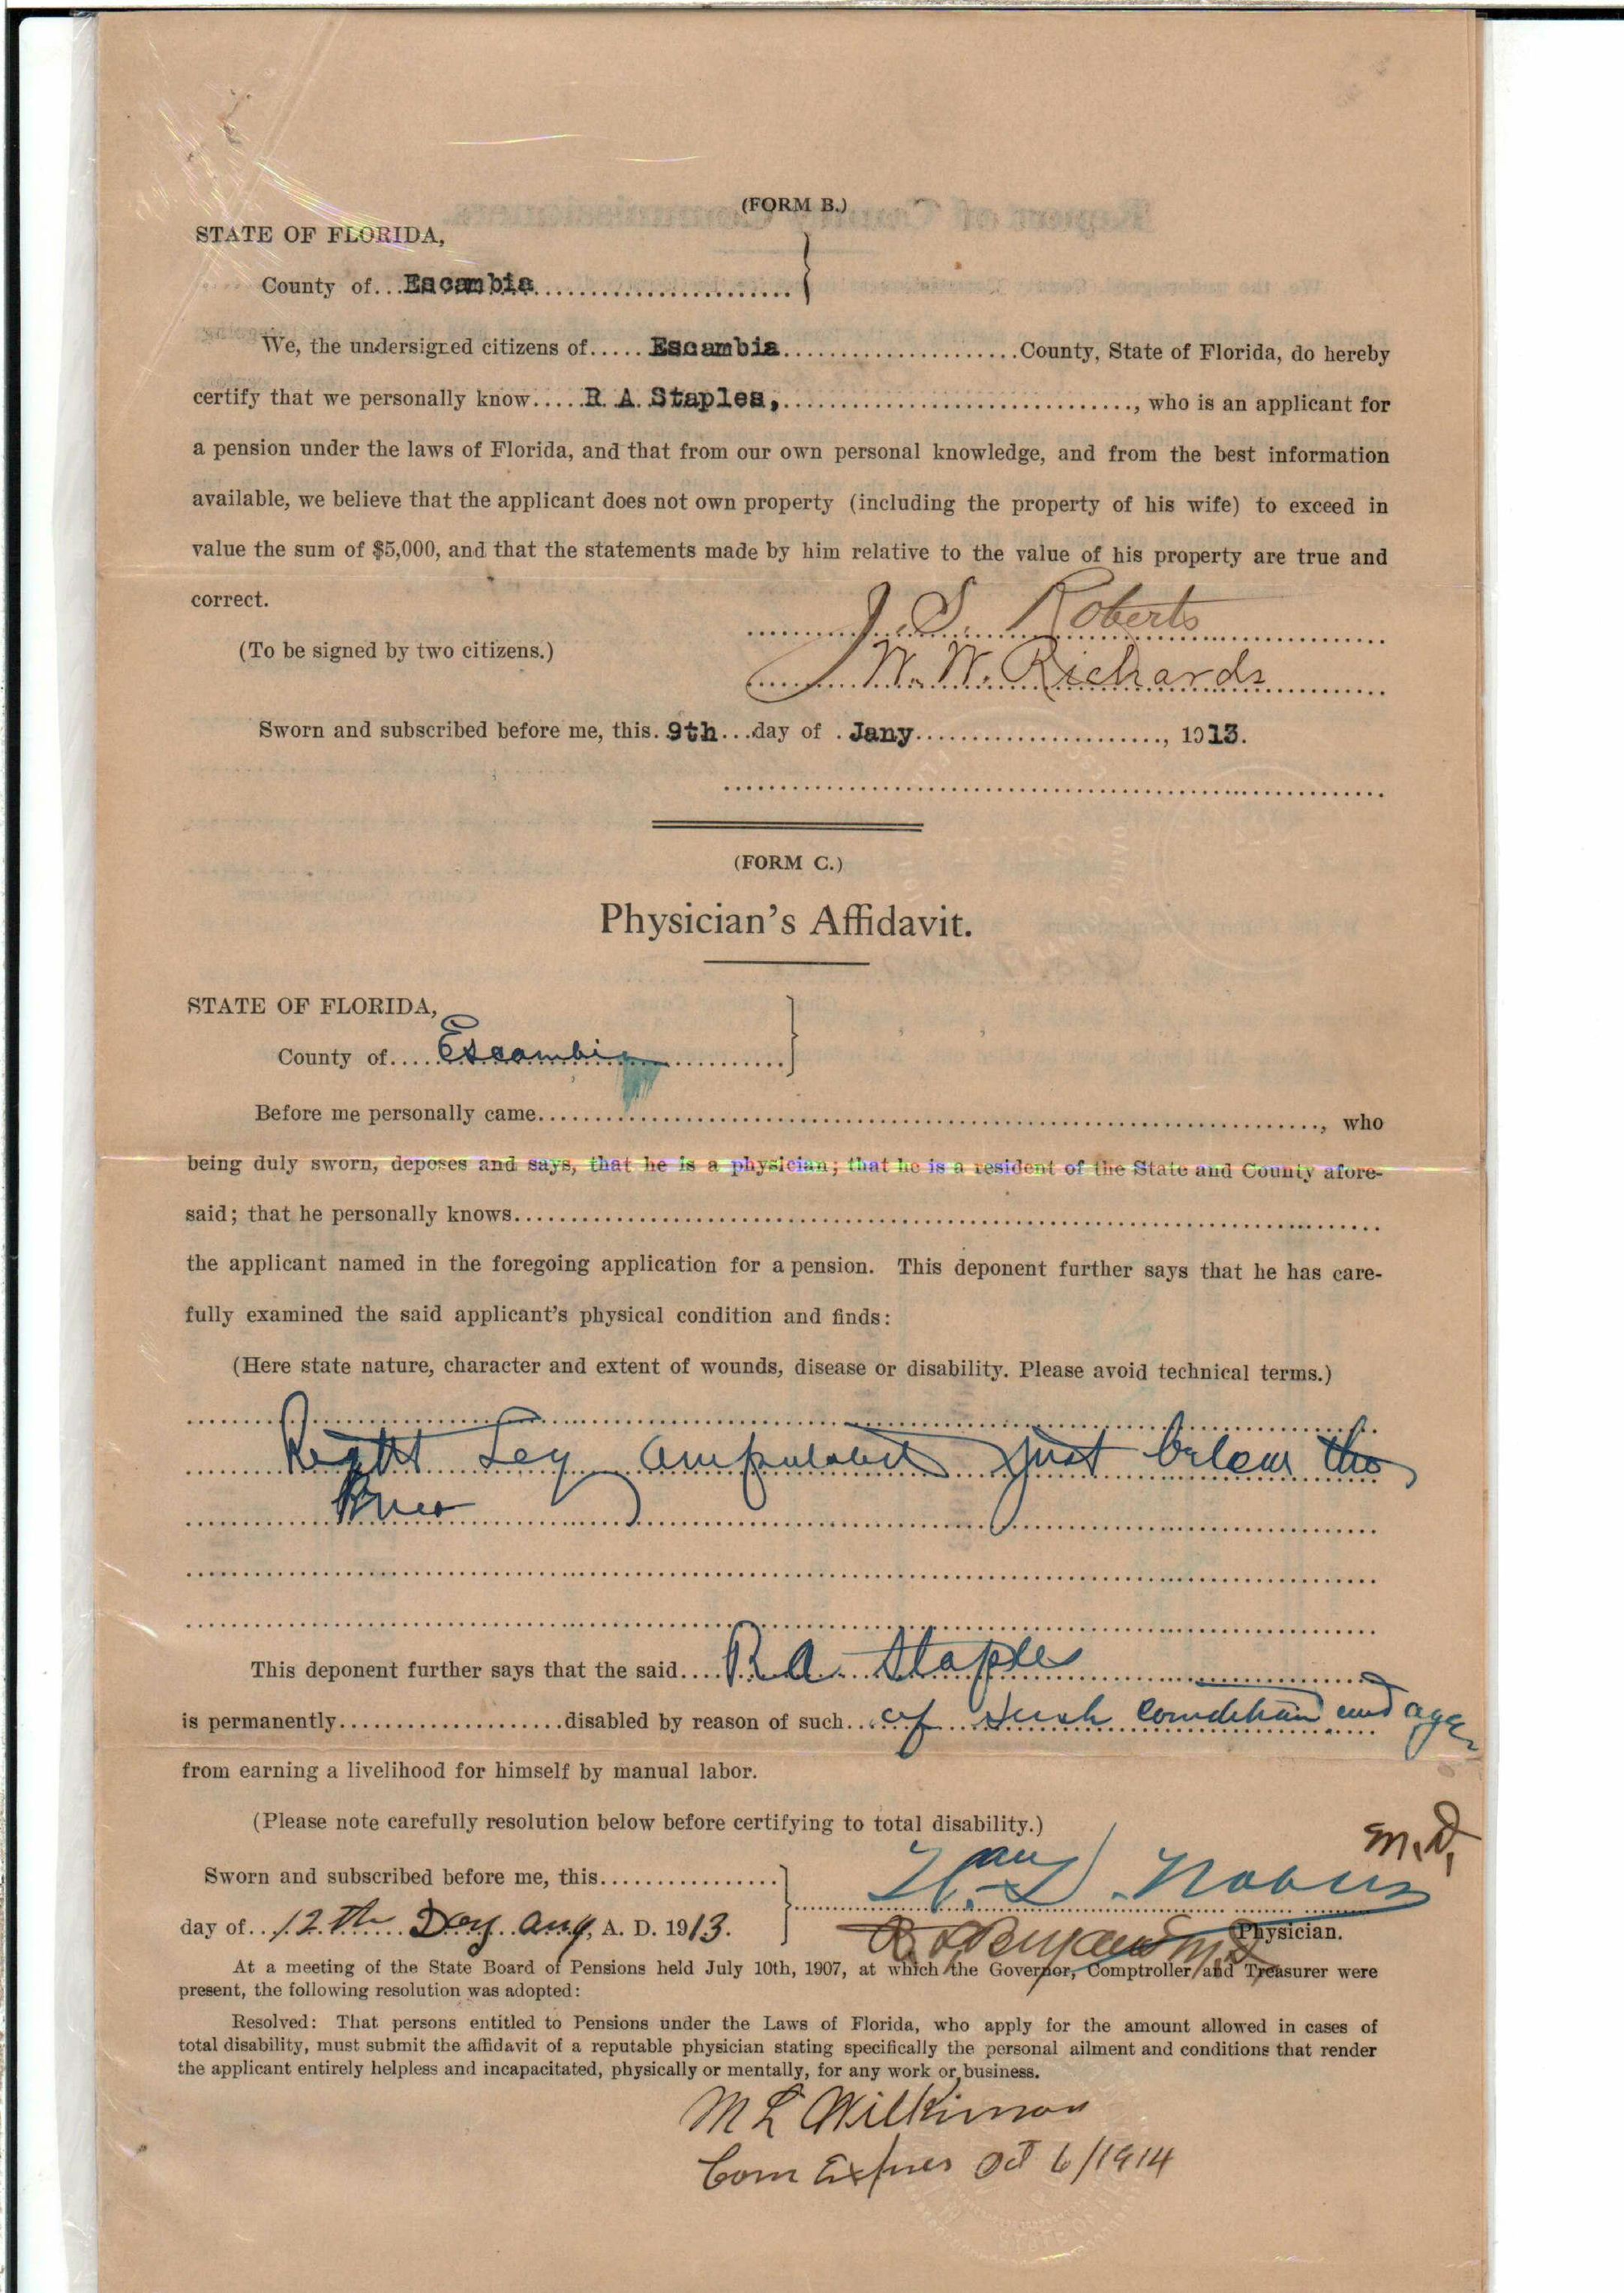 (FORM B.)
STATE OF FLORIDA,
County of...Escambia
We, the undersigned citizens of.....Escambia County, State of Florida, do hereby
certify that we personally know.....R. A. Staples, , who is an applicant for
a pension under the laws of Florida, and that from our own personal knowledge, and from the best information
available, we believe that the applicant does not own property (including the property of his wife) to exceed in
value the sum of $5,000, and that the statements made by him relative to the value of his property are true and
correct.
J. S. Roberts
(To be signed by two citizens.)
W. W. Richards
Sworn and subscribed before me, this. 9th...day of . Jany , 1913.
(FORM C.)
Physician's Affidavit.
STATE OF FLORIDA,
County of....Escambia
Before me personally came , who
being duly sworn, deposes and says, that he is a physician; that he is a resident of the State and County afore-
said; that he personally knows
the applicant named in the foregoing application for a pension. This deponent further says that he has care-
fully examined the said applicant's physical condition and finds:
(Here state nature, character and extent of wounds, disease or disability. Please avoid technical terms.)
Right Leg amputated just below the
Knee
This deponent further says that the said....R A Staples
is permanently disabled by reason of such...of such condition and age
from earning a livelihood for himself by manual labor.
(Please note carefully resolution below before certifying to total disability.)
M.D.
Sworn and subscribed before me, this
day of..12th Day Aug, A. D. 1913.
Physician.
At a meeting of the State Board of Pensions held July 10th, 1907, at which the Governor, Comptroller and Treasurer were
present, the following resolution was adopted:
Resolved: That persons entitled to Pensions under the Laws of Florida, who apply for the amount allowed in cases of
total disability, must submit the affidavit of a reputable physician stating specifically the personal ailment and conditions that render
the applicant entirely helpless and incapacitated, physically or mentally, for any work or business.
M L Wilkinson
Com Expires Oct 6/1914